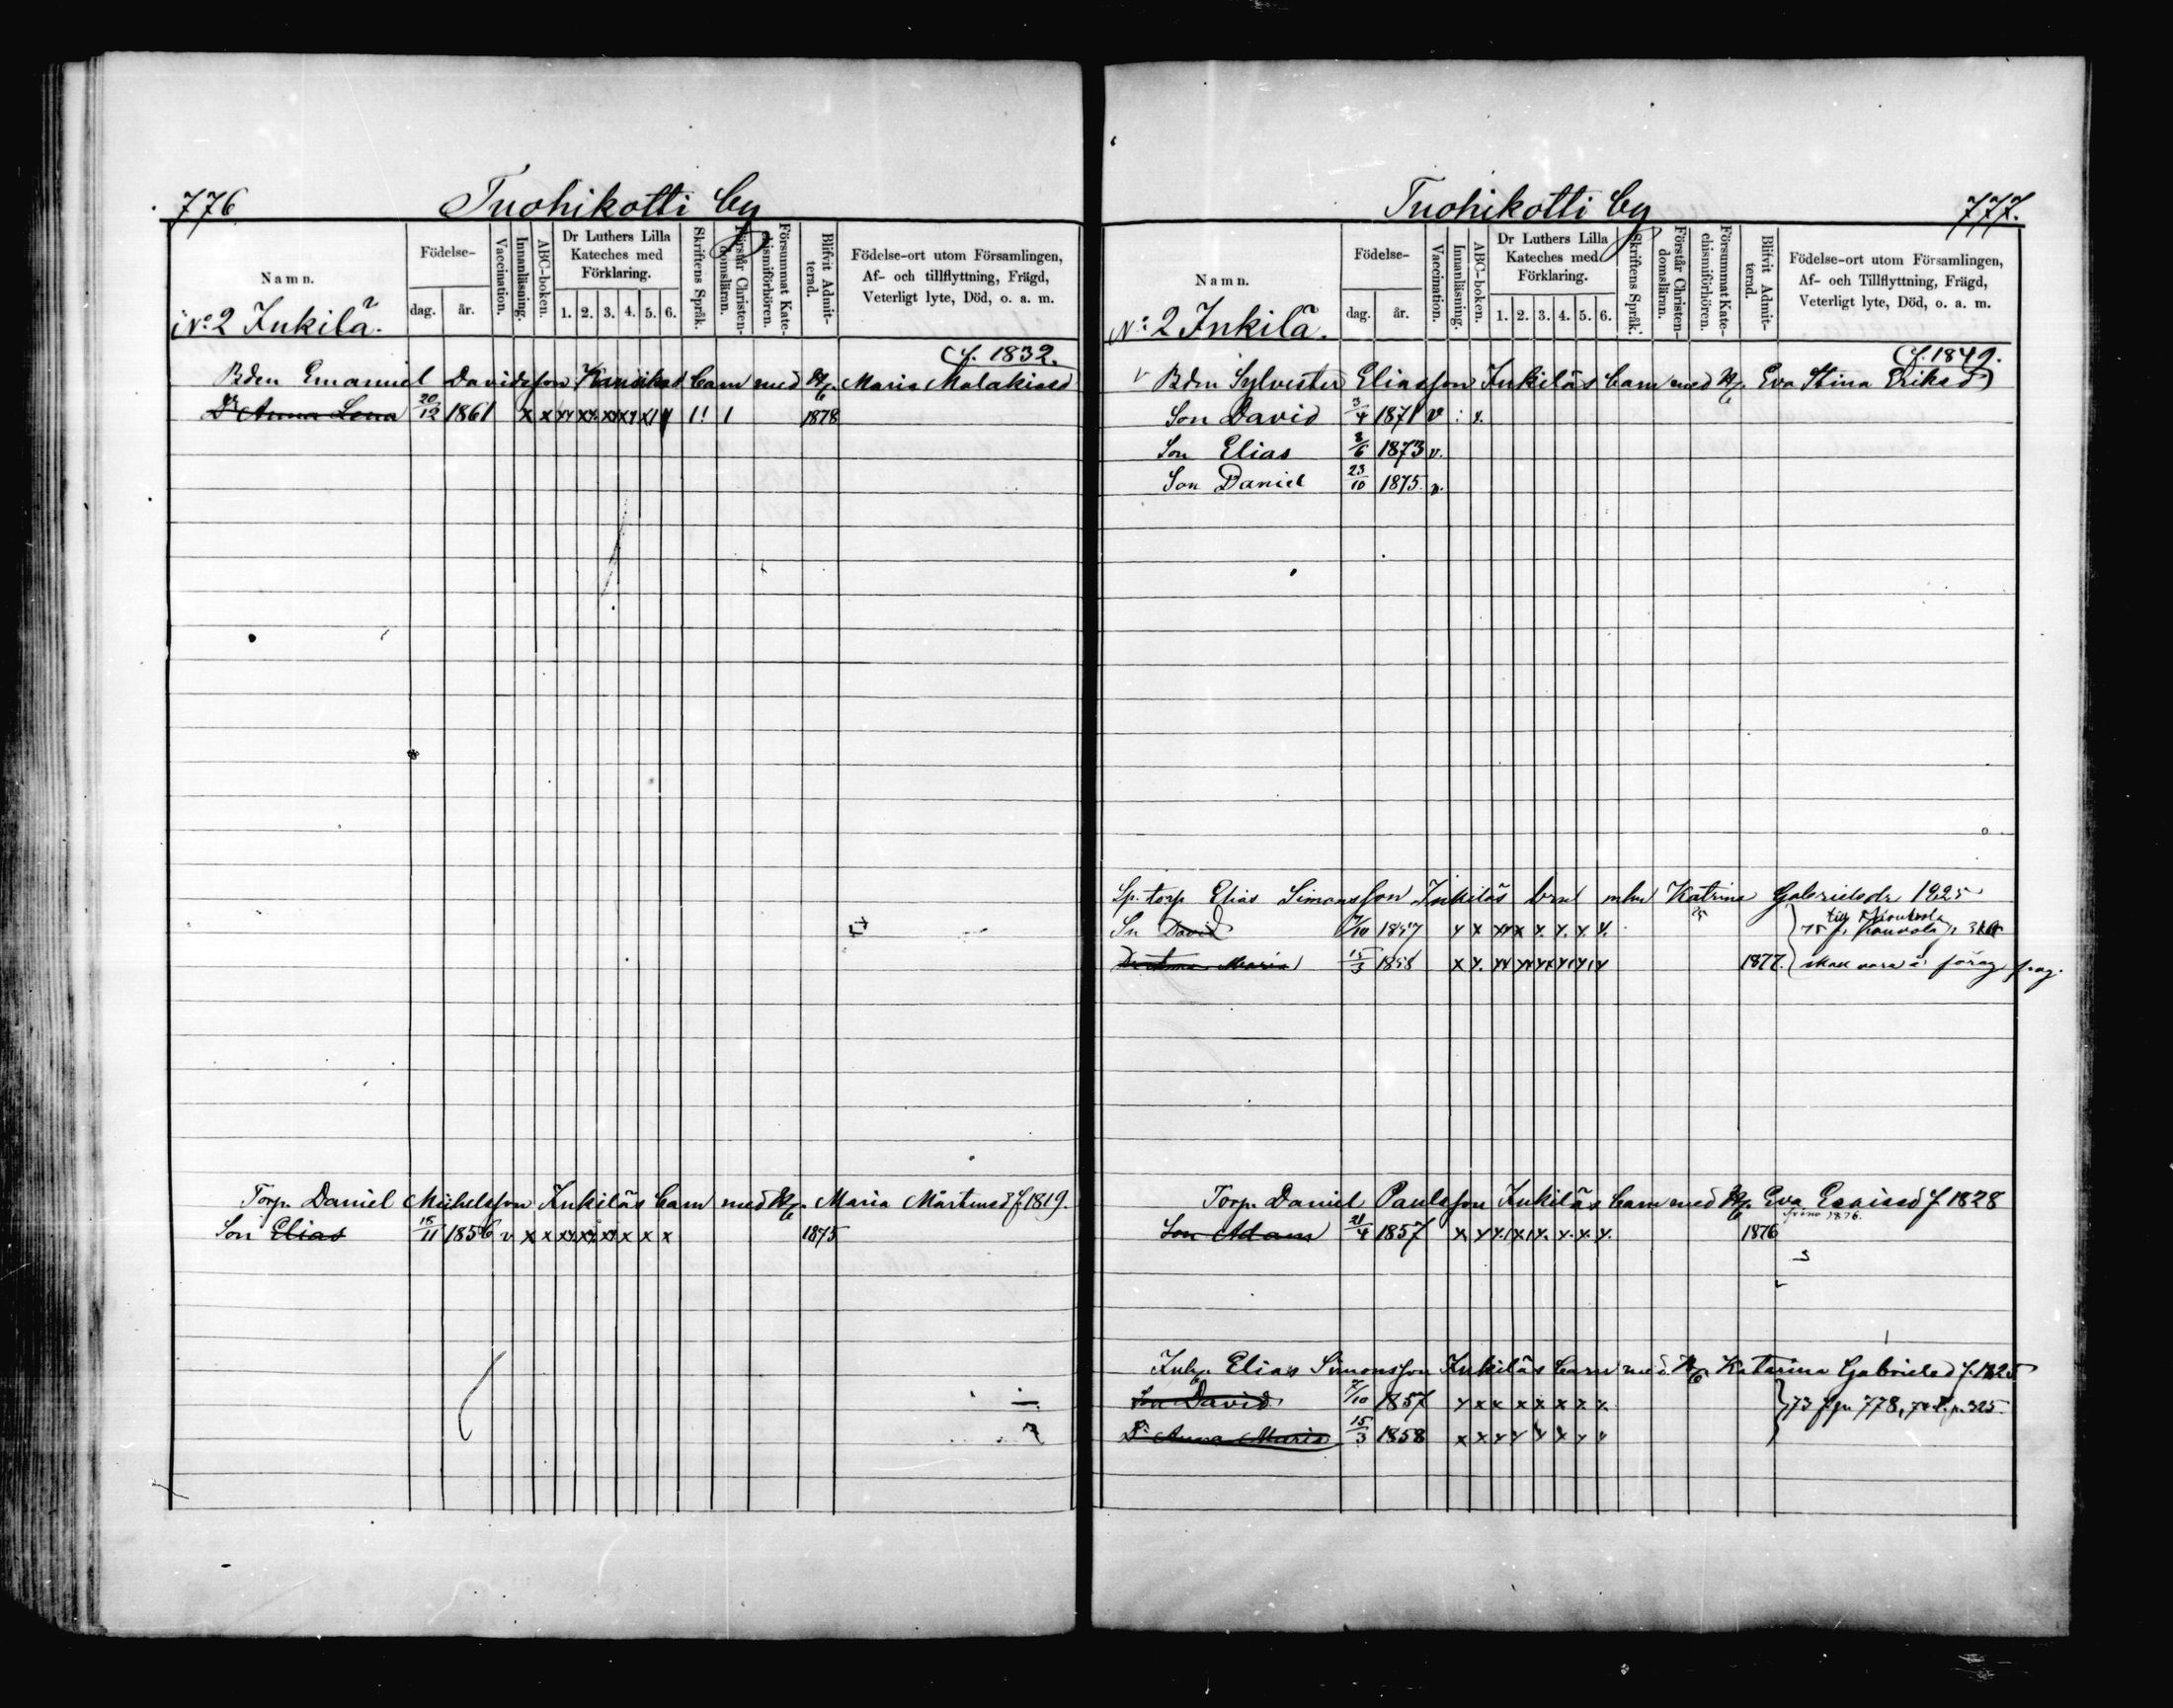 776
Tuohikotti by
Namn.
Födelse-
dag.
år.
Vaccination.
Innanläsning.
ABC-boken.
Dr Luthers Lilla
Kateches med
Förklaring.
1. 2. 3. 4. 5. 6.
Skriftens Språk.
Förstår Christen-
domsläran.
Försummat Kate-
chismiförhören.
Blifvit Admit-
terad.
Födelse-ort utom Församlingen,
Af- och tillflyttning, Frägd,
Veterligt lyte, Död, o. a. m.
No 2 Inkilä.
f. 1832.
Bden Emanuel Davidsson barn med Maria Malakiasd
Dr Anna Lena 20/12 1861 1878
Torp. Daniel Michelsson Inkiläs barn med Maria Mårtensd f 1819.
Son Elias 15/11 1856 v x x 1875
Tuohikotti by
777.
Namn.
Födelse-
dag.
år.
Vaccination.
Innanläsning.
ABC-boken.
Dr Luthers Lilla
Kateches med
Förklaring.
1. 2. 3. 4. 5. 6.
Skriftens Språk.
Förstår Christen-
domsläran.
Försummat Kate-
chismiförhören.
Blifvit Admit-
terad.
Födelse-ort utom Församlingen,
Af- och Tillflyttning, Frägd,
Veterligt lyte, Död, o. a. m.
No: 2 Inkilä.
f. 1849.
v Bden Sylvester Eliasson Inkiläs barn med Eva Stina Eriksd
Son David 3/4 1871 v
Son Elias 8/6 1873 v.
Son Daniel 23/10 1875. v.
Sp. torp Elias Simonsson Inkiläs Katrina Gabrielsdr 1825
Sn David 7/10 1857
Anna Maria 15/3 1858 1877. skall vara å
Torp. Daniel Paulsson Inkiläs barn med Eva Esaisd f 1828
Son Adam 21/4 1857 1876
Inh. Elias Simonsson Inkiläs barn med Katarina Gabrielsd f. 1825
Son David 7/10 1857 73 f. p. 778, p. 325.
Dr Anna Maria 15/3 1858